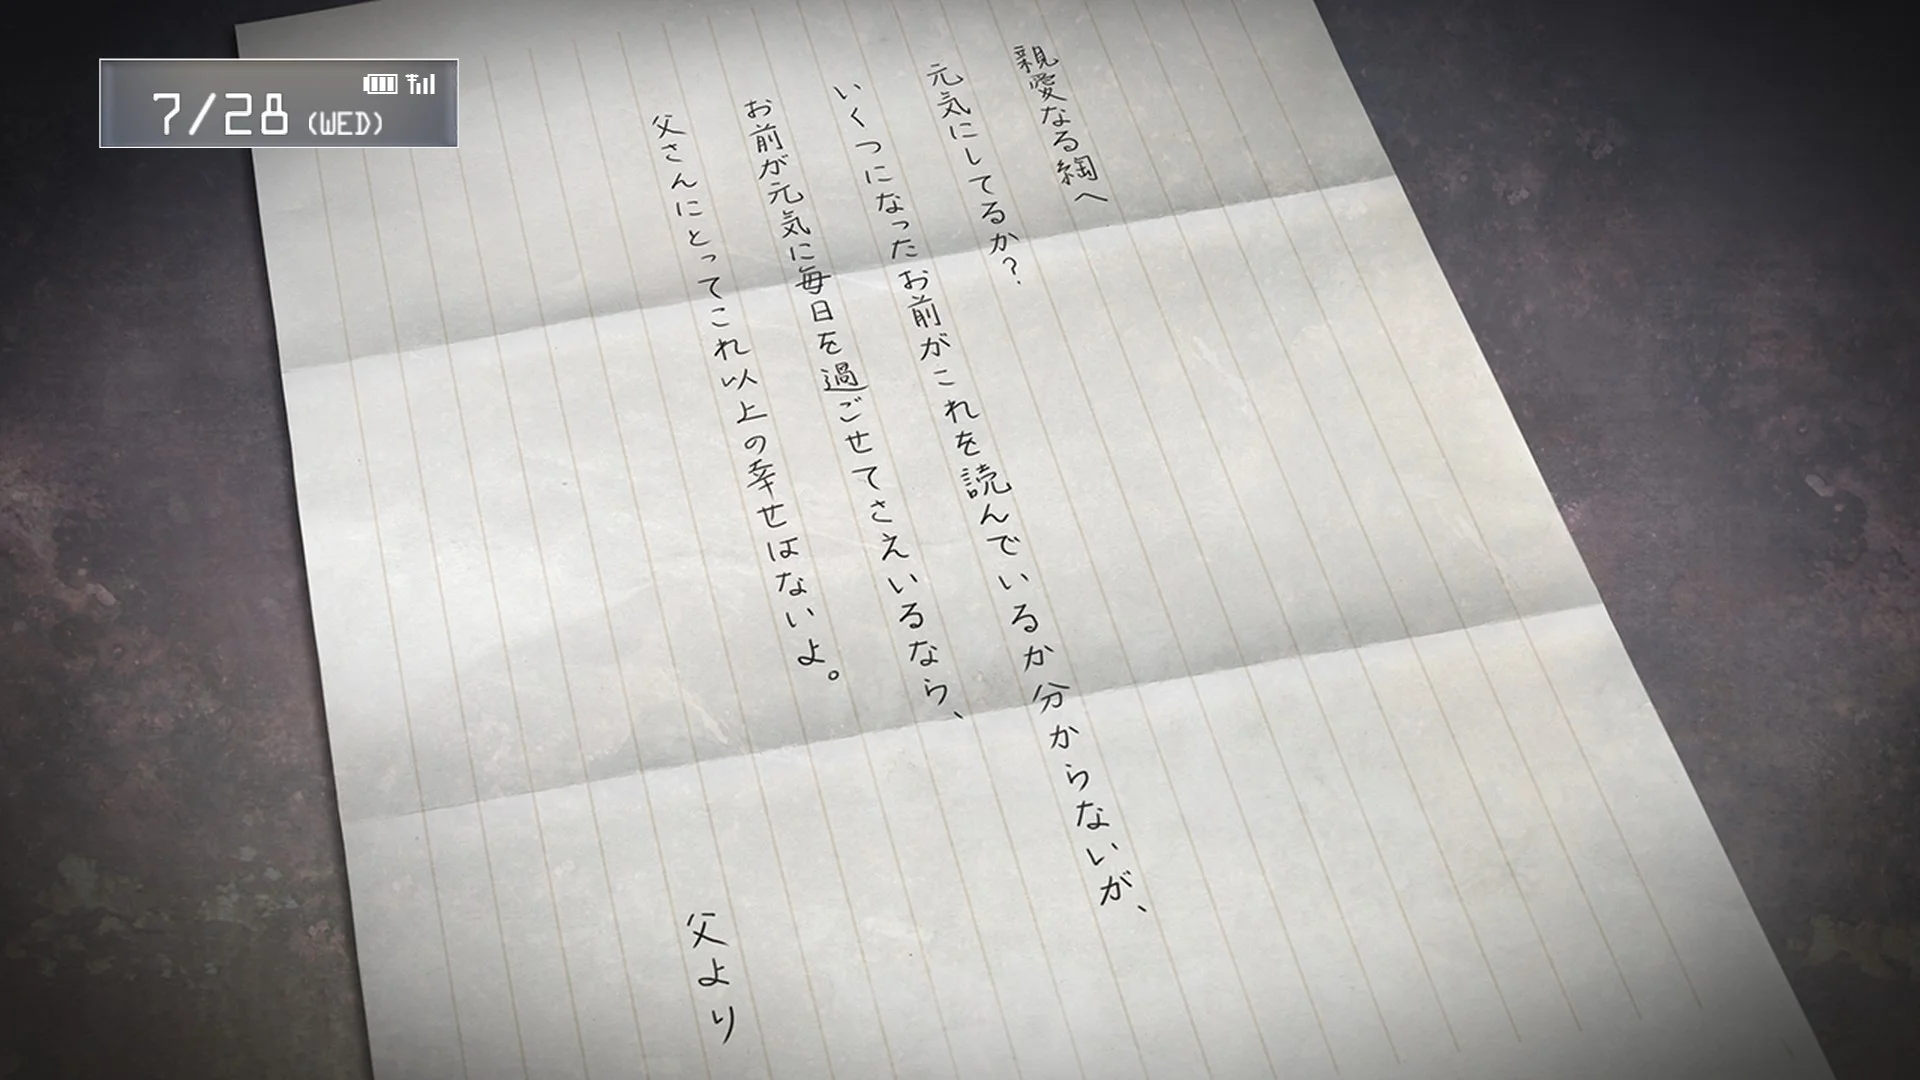 7/28 (WED)
親愛なる綯へ
元気にしてるか?
いくつになったお前がこれを読んでいるか分からないが、
お前が元気に毎日を過ごせてさえいるなら、
父さんにとってこれ以上の幸せはないよ。
父より